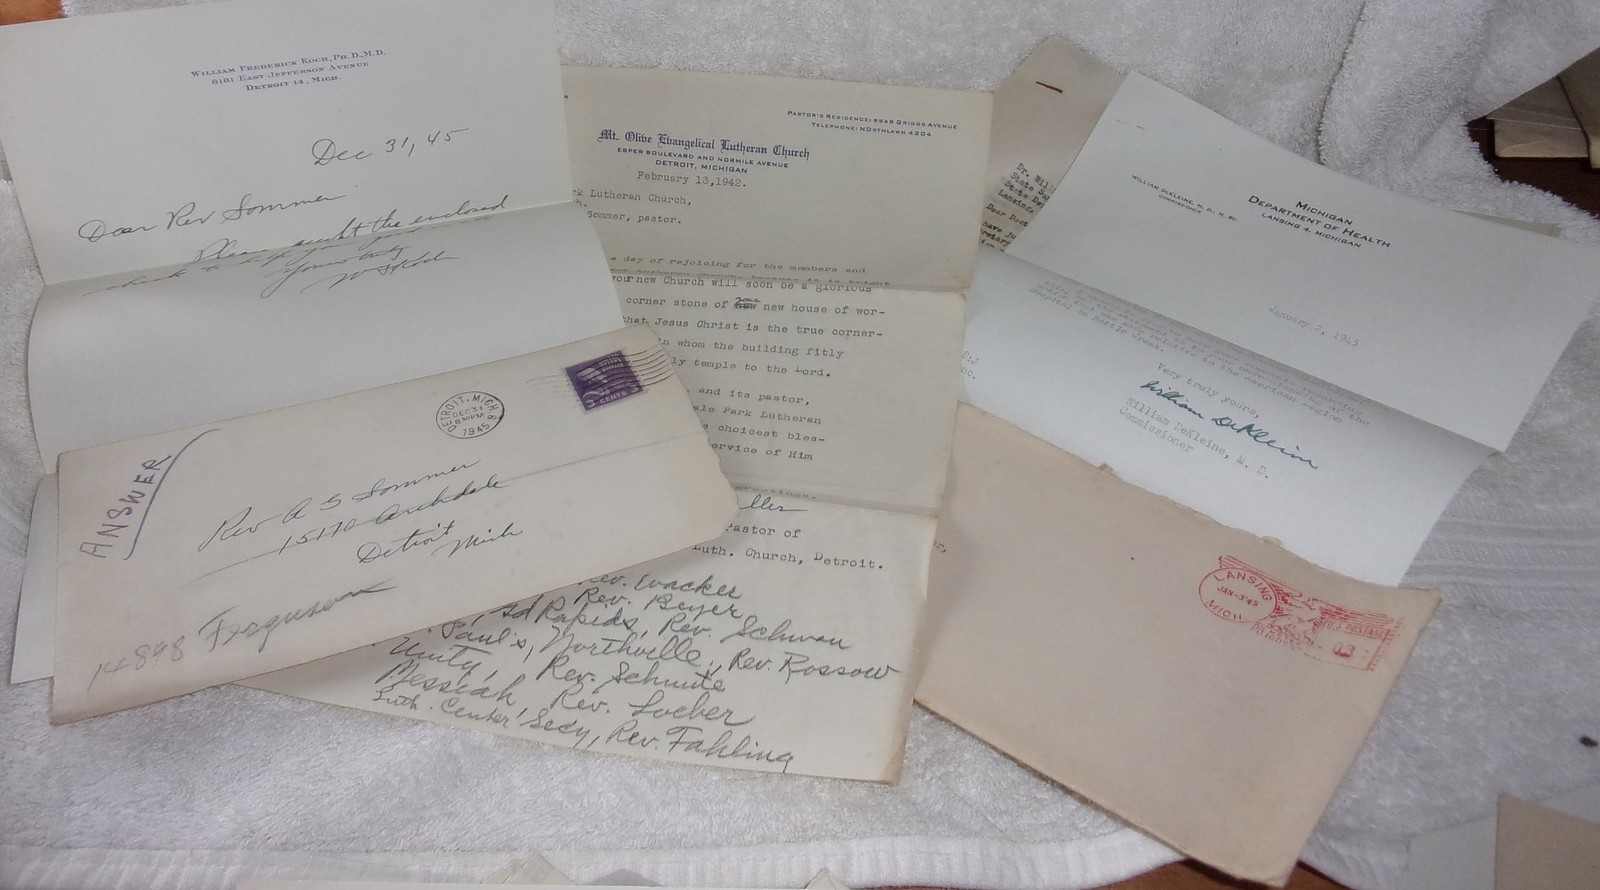 WILLIAM FREDERICK KOCH, PH.D., M.D.
8181 EAST JEFFERSON AVENUE
DETROIT 14, MICH.
Dec 31, 45
Dear Rev Sommer
Please accept the enclosed
check to help you
Yours truly
ANSWER
DETROIT, MICH
DEC 31
1945
3 CENTS 3
Rev A S Sommer
15170 Archdale
Detroit
Mich
14898 Ferguson
PASTOR'S RESIDENCE: 8948 GRIGGS AVENUE
TELEPHONE: NORTHLAWN 4204
Mt. Olive Evangelical Lutheran Church
ESPER BOULEVARD AND NORMILE AVENUE
DETROIT, MICHIGAN
February 13,1942.
rk Lutheran Church,
h.
Sommer, pastor.
a day of rejoicing for the members and
your new Church will soon be a glorious
corner stone of your new house of wor-
that Jesus Christ is the true corner-
in whom the building fitly
ly temple to the Lord.
and its pastor,
ale Park Lutheran
s choicest bles-
ervice of Him
Pastor of
Luth. Church, Detroit.
Rev. Evacker
Rev. Beyer
Gd Rapids, Rev. Schwan
Paul's, Northville, Rev. Rossow
Unity, Rev. Schmite
Messiah Rev. Loeber
Luth. Center Secy, Rev. Fahling
Dr. Willi
State
State De
Lansing,
Dear Doct
have ju
WILLIAM DEKLEINE, M. D., M. SC.
COMMISSIONER
MICHIGAN
DEPARTMENT OF HEALTH
LANSING 4, MICHIGAN
January 2, 1945
relative to the American
hospital in Battle Creek.
Very truly yours,
William DeKleine
William DeKleine, M. D.
Commissioner
LANSING
JAN-3'45
MICH
U.S. POSTAGE
.03